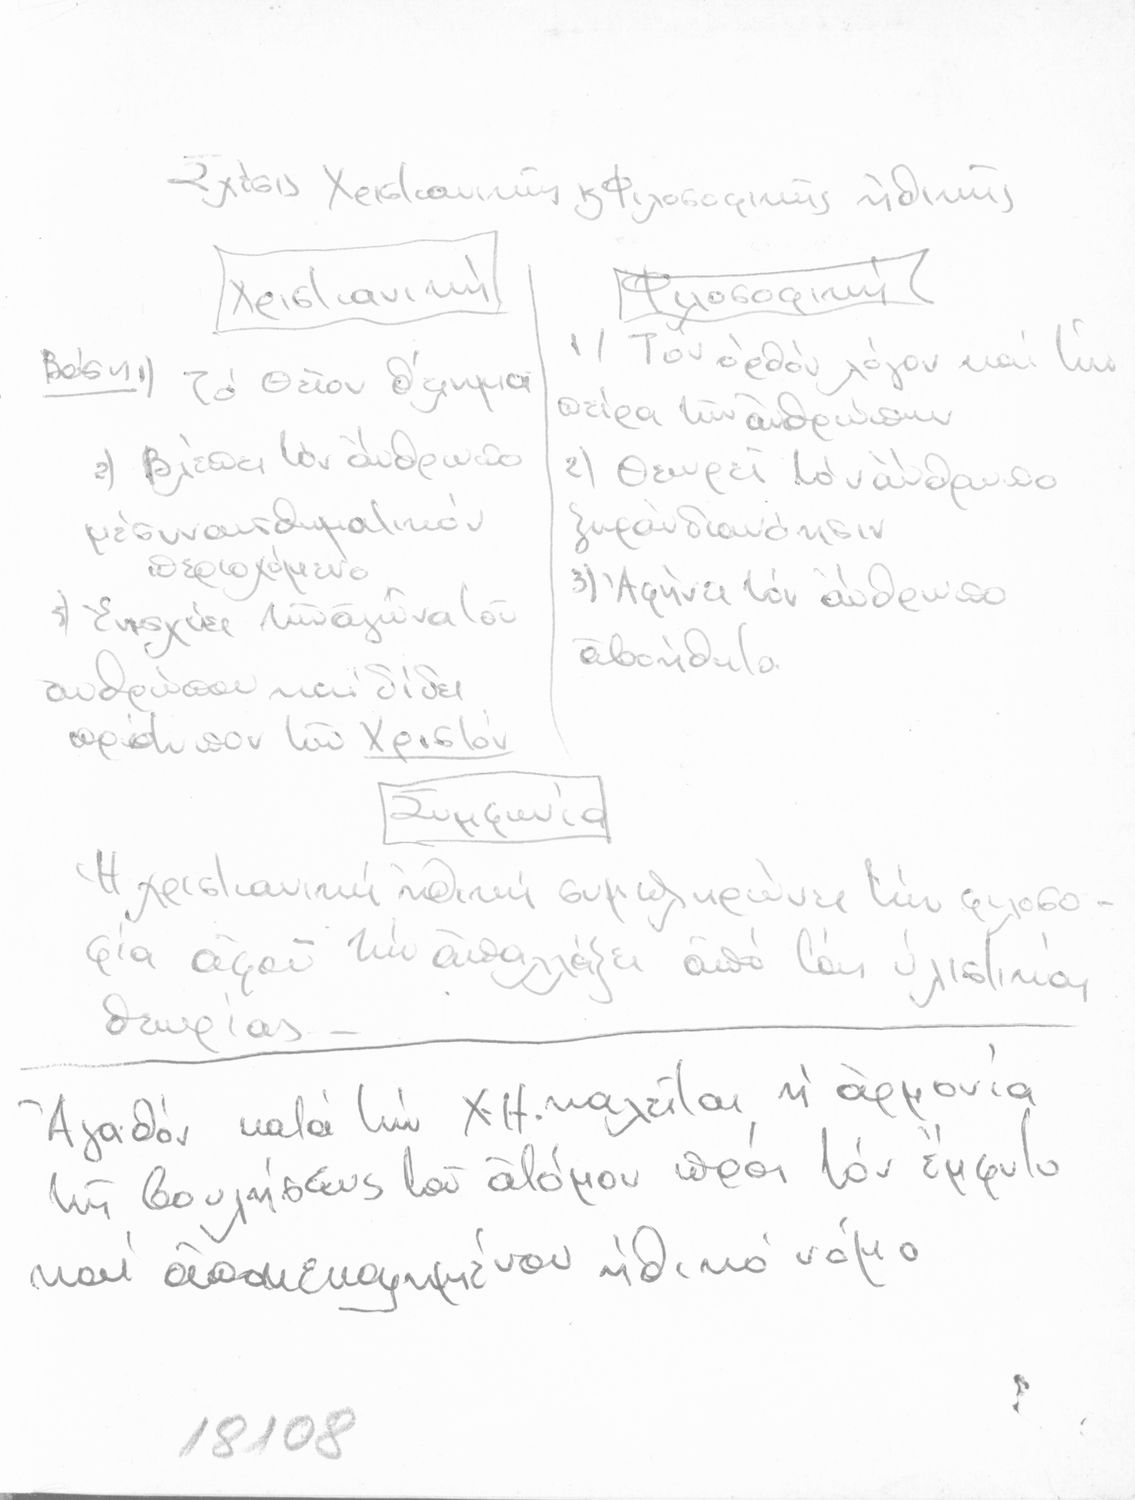 Σχέσις Χριστιανικῆς κ Φιλοσοφικῆς ἠθικῆς
Χριστιανική
Βάση 1) Τό Θεῖον θέλημα
2) Βλέπει τόν ἄνθρωπο
μέ συναισθηματικόν
περιεχόμενο
3) Ἐνισχύει τόν ἀγῶνα τοῦ
ἀνθρώπου καί δίδει
πρότυπον τόν Χριστόν
Φιλοσοφική
1) Τόν ὀρθόν λόγον καί τήν
πείρα τῶν ἀνθρώπων
2) Θεωρεῖ τόν ἄνθρωπο
ξηράν διανόησιν
3) Ἀφήνει τόν ἄνθρωπο
ἀβοήθητο
Συμφωνία
Ἡ χριστιανική ἠθική συμπληρώνει τήν φιλοσο-
φία ἀφοῦ τήν ἀπαλλάξει ἀπό τάς ὑλιστικάς
θεωρίας –
Ἀγαθόν κατά τήν Χ.Η. καλεῖται ἡ ἁρμονία
τῆς βουλήσεως τοῦ ἀτόμου πρός τόν ἔμφυτο
καί ἀποκεκαλυμμένον ἠθικό νόμο
18108